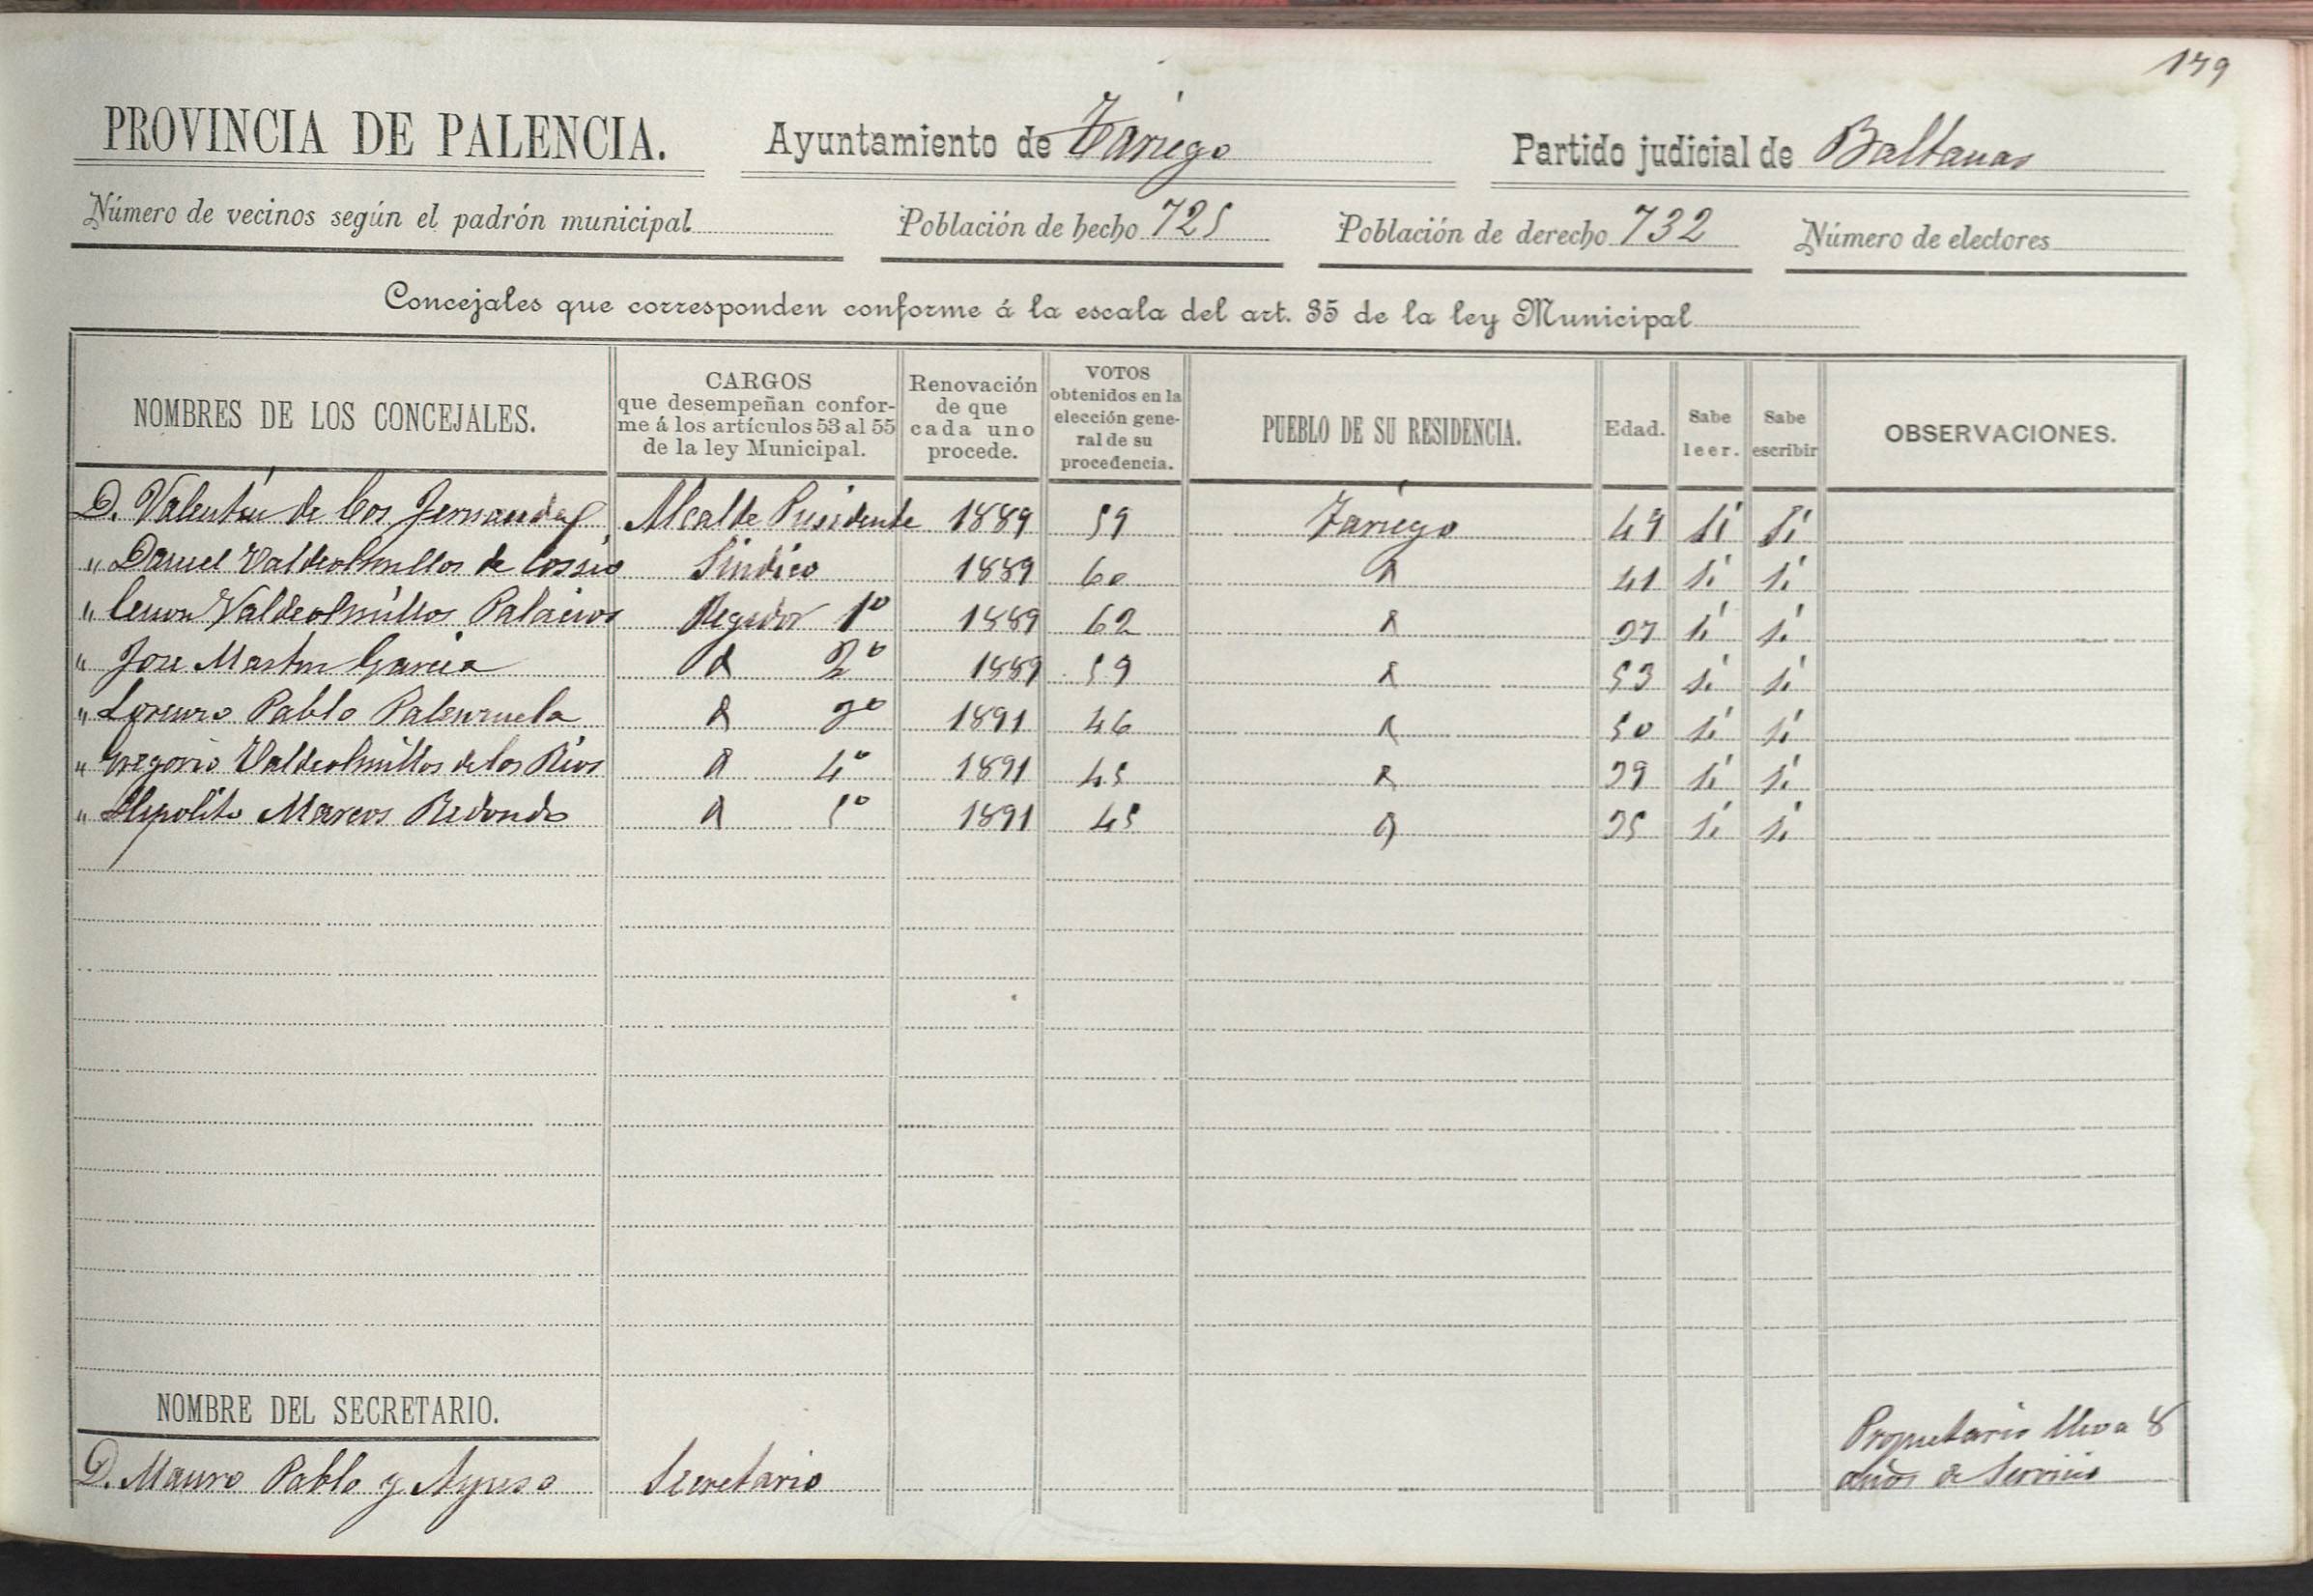 179
PROVINCIA DE PALENCIA. Ayuntamiento de Tariego Partido judicial de Baltanas
Número de vecinos según el padrón municipal Población de hecho 725 Población de derecho 732 Número de electores
Concejales que corresponden conforme á la escala del art. 35 de la ley Municipal
NOMBRES DE LOS CONCEJALES.
CARGOS
que desempeñan confor-
me á los artículos 53 al 55
de la ley Municipal.
Renovación
de que
cada uno
procede.
VOTOS
obtenidos en la
elección gene-
ral de su
procedencia.
PUEBLO DE SU RESIDENCIA.
Edad.
Sabe
leer.
Sabe
escribir
OBSERVACIONES.
D. Valentín de Cos Fernandez Alcalde Presidente 1889 59 Tariego 49 Sí Sí
" Daniel Valdeolmillos de Cossio Síndico 1889 60 41 Sí Sí
" Valdeolmillos Palacios Regidor 1º 1889 62 37 Sí Sí
" Jose Martin Garcia 2º 1889 59 53 Sí Sí
" Lorenzo Pablo Palenzuela 3º 1891 46 50 Sí Sí
" Gregorio Valdeolmillos de los Rios 4º 1891 45 39 Sí Sí
" Hipolito Marcos Redondo 5º 1891 45 35 Sí Sí
NOMBRE DEL SECRETARIO.
D. Mauro Pablo y Ayuso Secretario Propietario lleva 8
años de Servicio